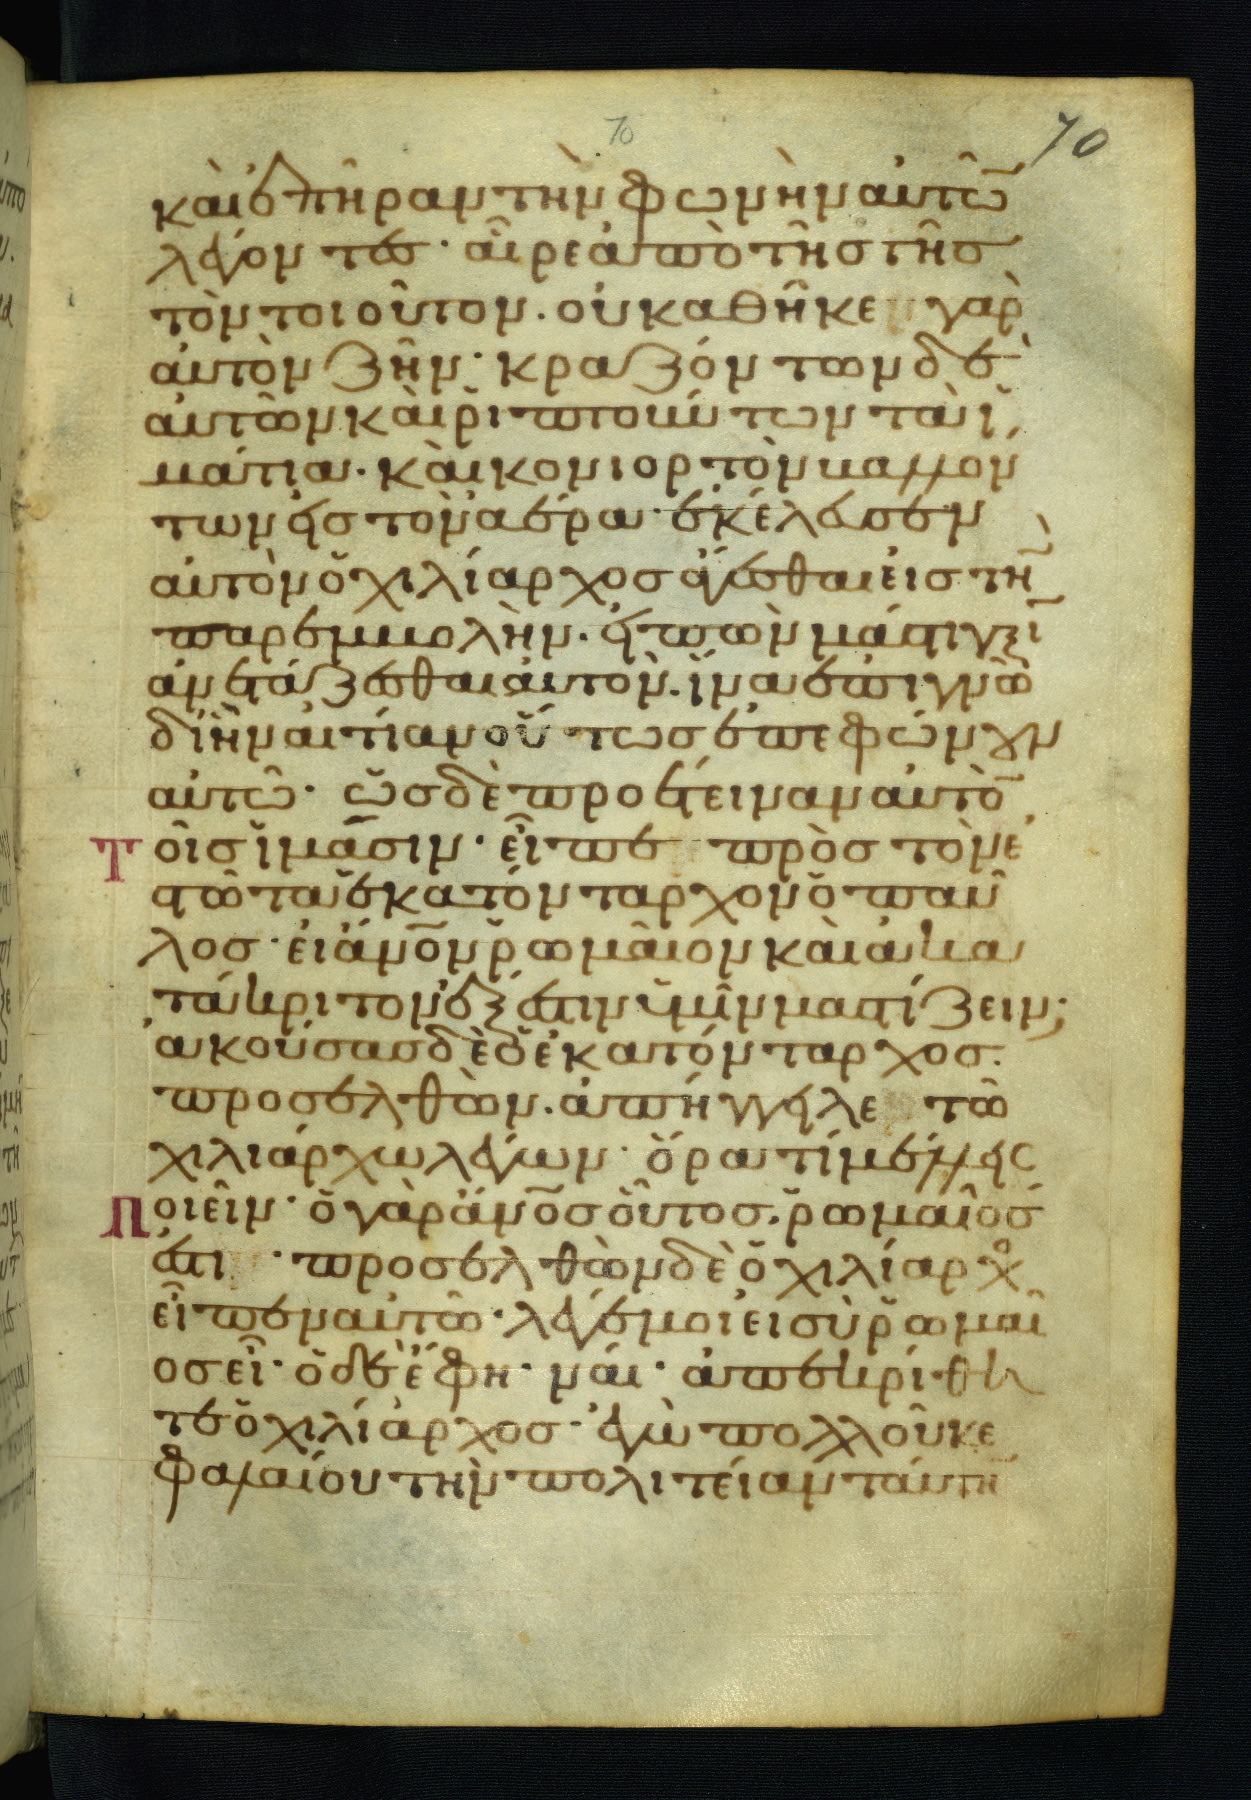 70
70
καὶ ἐπῆραν τὴν φωνὴν αὐτῶ̅
λέγοντες· αἶρε ἀπὸ τῆς γῆς
τὸν τοιοῦτον. οὐ καθῆκε γὰρ
αὐτὸν ζῆν· κραζόντων δὲ
αὐτῶν καὶ ῥιπτούντων τὰ ἱ
μάτια. καὶ κονιορτὸν βαλλόν
των εἰς τὸν ἀέρα· ἐκέλευσεν
αὐτὸν ὁ χιλίαρχος ἄγεσθαι εἰς τὴ̅
παρεμβολὴν. εἰπὼν μάστιξι̅
ἀνετάζεσθαι αὐτὸν. ἵνα ἐπιγνῶ
δι ἣν αἰτίαν οὕτως ἐπεφώνουν
αὐτῶ· ὡς δὲ προέτειναν αὐτὸ̅
τοῖς ἱμᾶσιν· εἶπε πρὸς τὸν ἑ
στῶτα ἑκατόνταρχον ὁ παῦ
λος· εἰ ἄν̅ον ῥωμαῖον καὶ ἀκα
τάκριτον ἔξεστιν ὑμῖν μαστίζειν;
ἀκούσας δὲ ὁ ἑκατόνταρχος.
προσελθὼν. ἀπήγγειλε τῶ
χιλιάρχω λέγων· ὅρα τί μέλλεις
ποιεῖν· ὁ γὰρ ἄν̅ος οὗτος. ῥωμαῖός
ἐστι · προσελθὼν δὲ ὁ χιλίαρχο
εἶπεν αὐτῶ· λέγε μοι εἰ σὺ ῥωμαῖ
ος εἶ· ὁ δὲ ἔφη· ναί· ἀπεκρίθη
τε ὁ χιλίαρχος· ἐγὼ πολλοῦ κε
φαλαίου τὴν πολιτείαν ταύτη̅